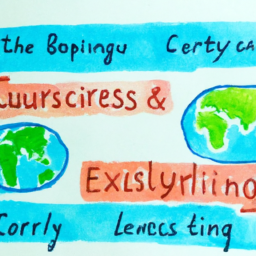 the Bopingu Certy ca
uursciress &
Exıslyrliino
Corrly Lewcs ting